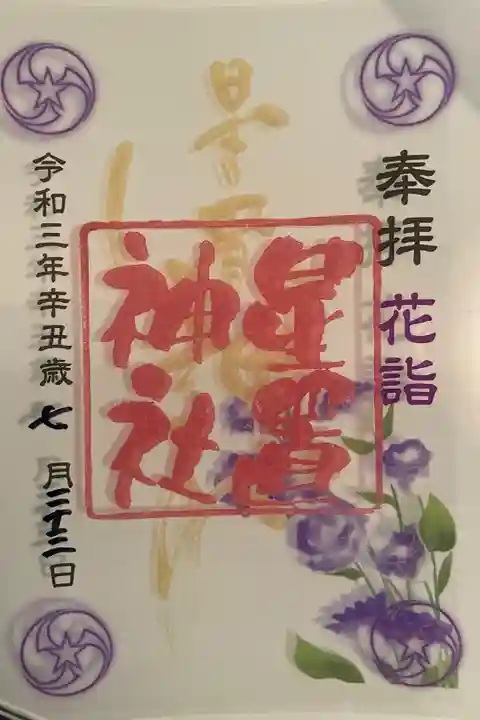 奉拝 花詣
星置
神社
令和三年辛丑歳 七 月二十二日